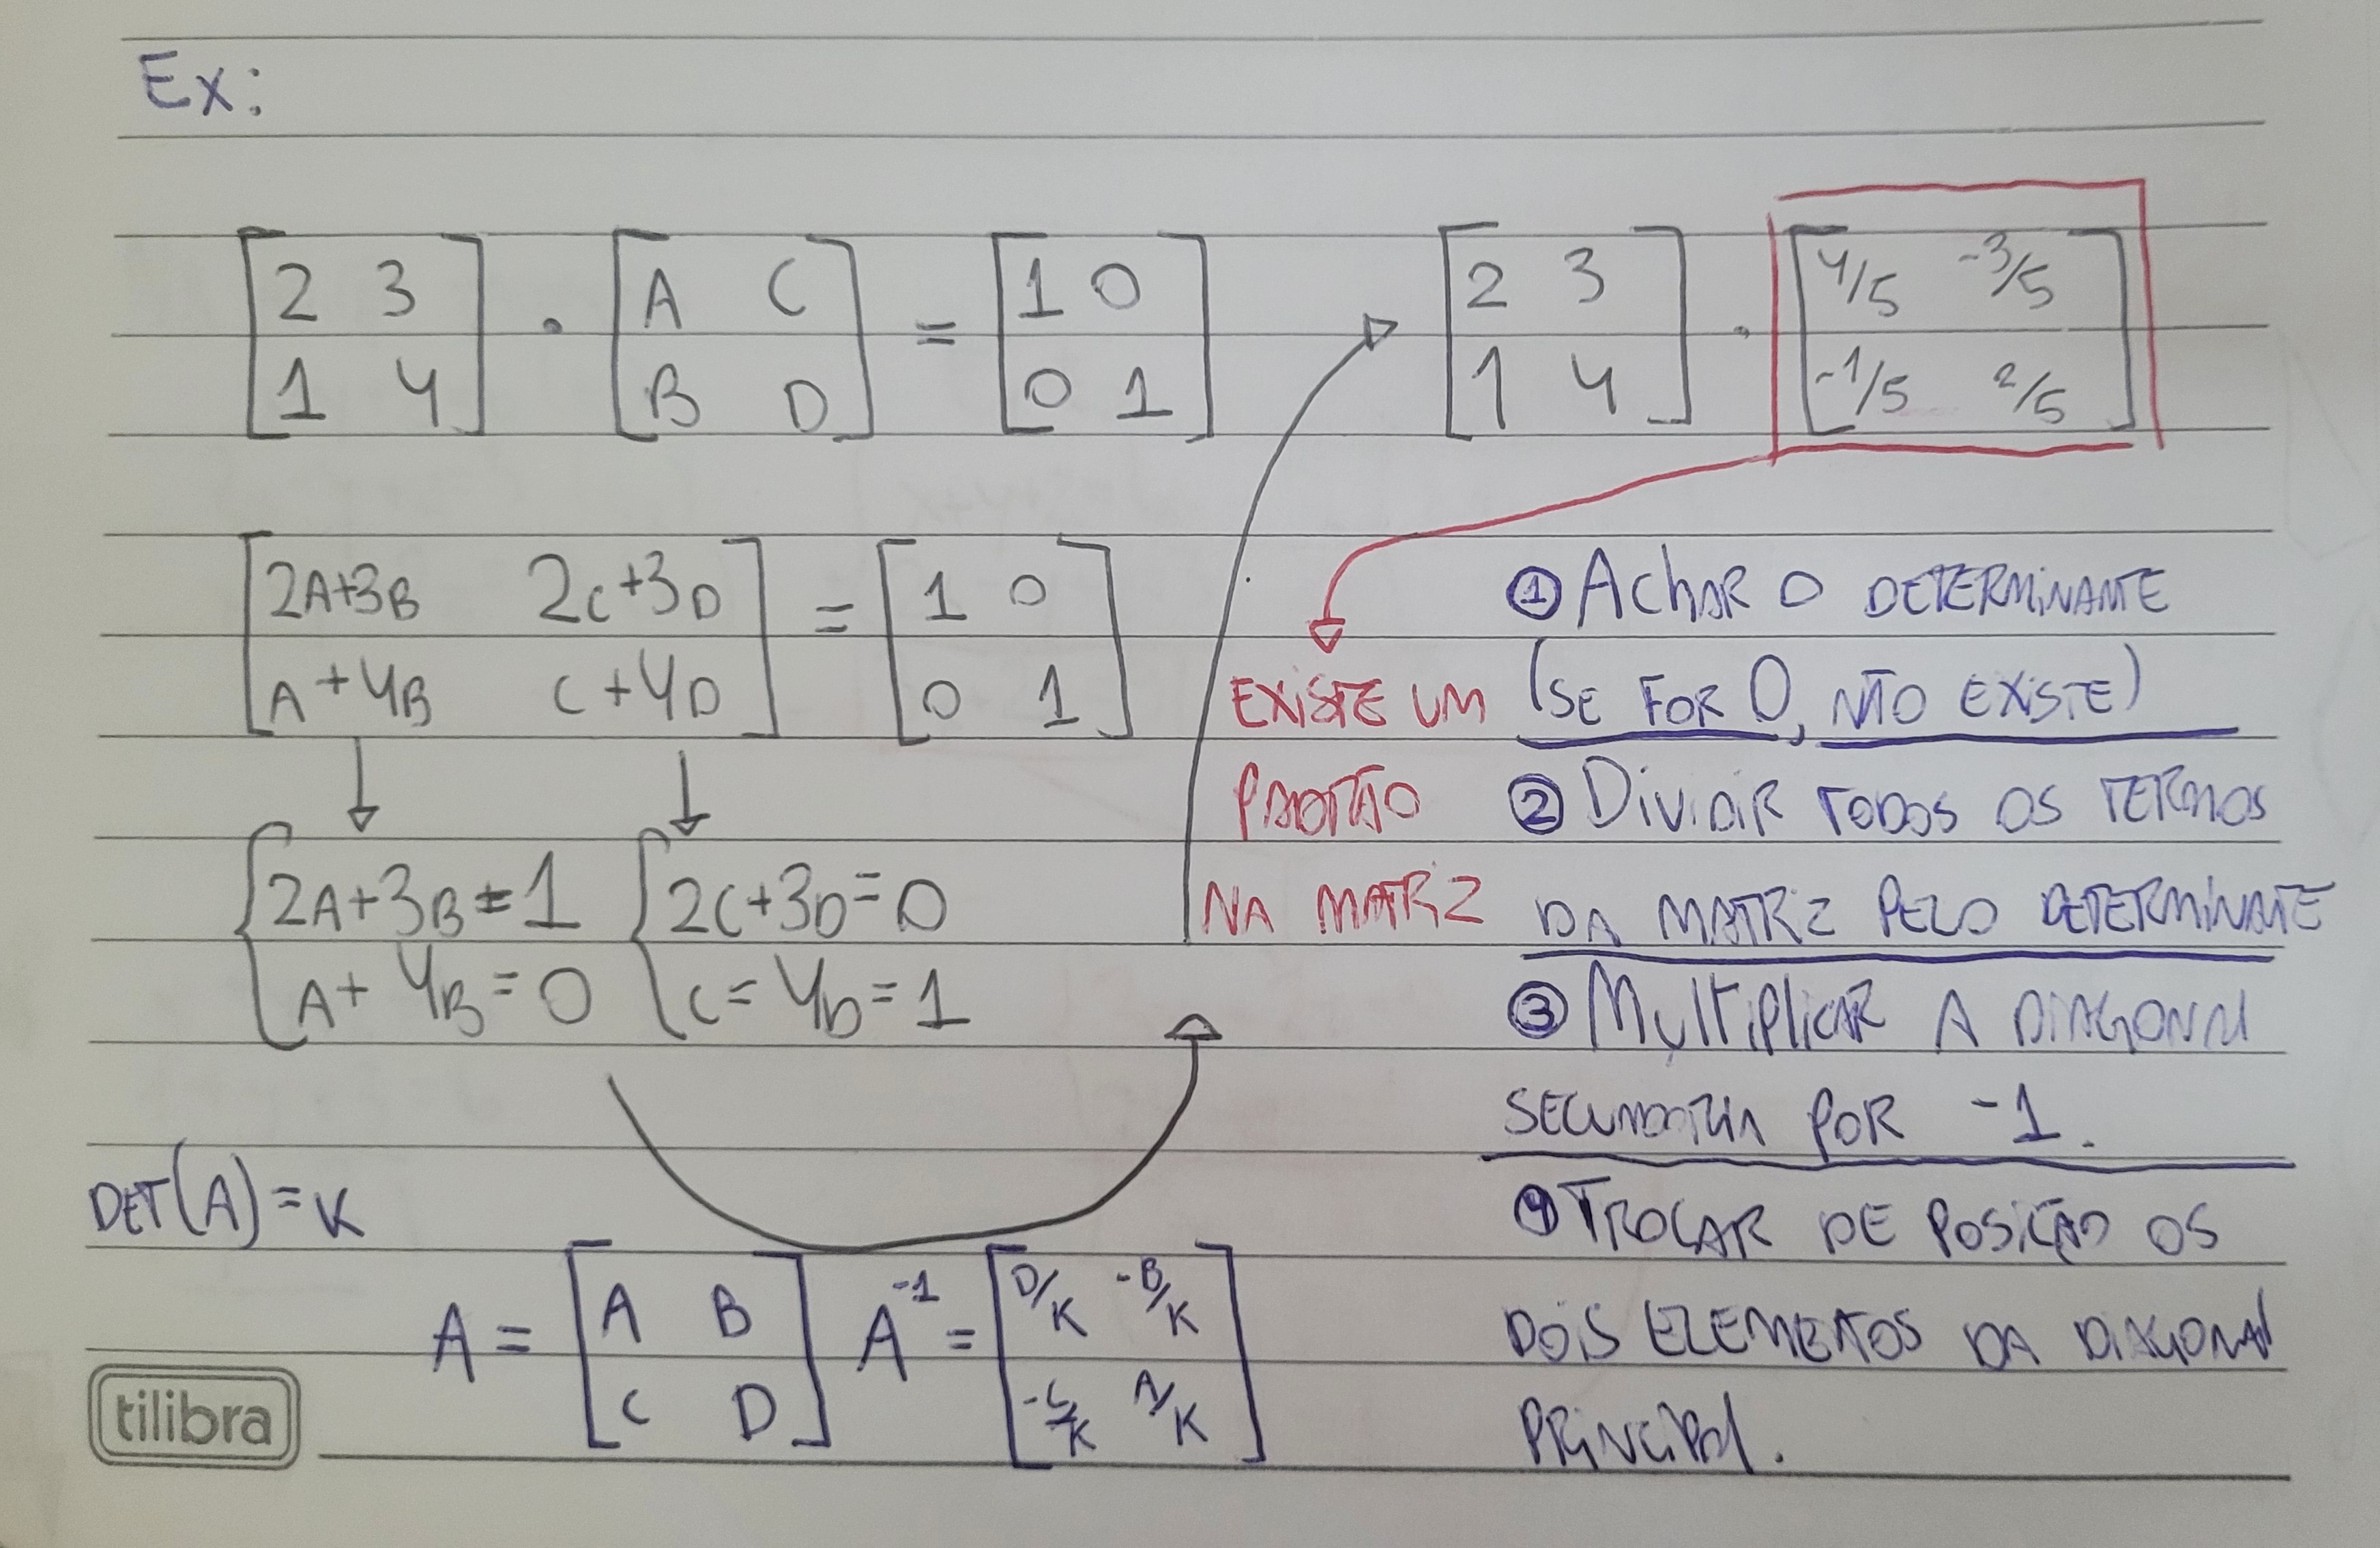 Ex:
[2 3] . [A C] = [1 0]
[1 4] [B D] [0 1]
[2A+3B 2C+3D] = [1 0]
[A+4B C+4D] [0 1]
{2A+3B=1 {2C+3D=0
A+4B=0 C=4D=1
[2 3] . [4/5 -3/5]
[1 4] [-1/5 2/5]
EXISTE UM
PADRÃO
NA MATRIZ
① AchAR O DETERMINANTE
(SE FOR 0, NÃO EXISTE)
② DividiR TODOS OS TERMOS
DA MATRIZ PELO DETERMINANTE
③ MultiplicAR A DIAGONAl
SECUNDÁRIA POR -1.
④ TROCAR DE POSIÇÃO OS
DOIS ELEMENTOS DA DIAGONAl
PRINCIPAl.
DET(A)=K
A = [A B] A⁻¹ = [D/K -B/K]
[C D] [-C/K A/K]
tilibra